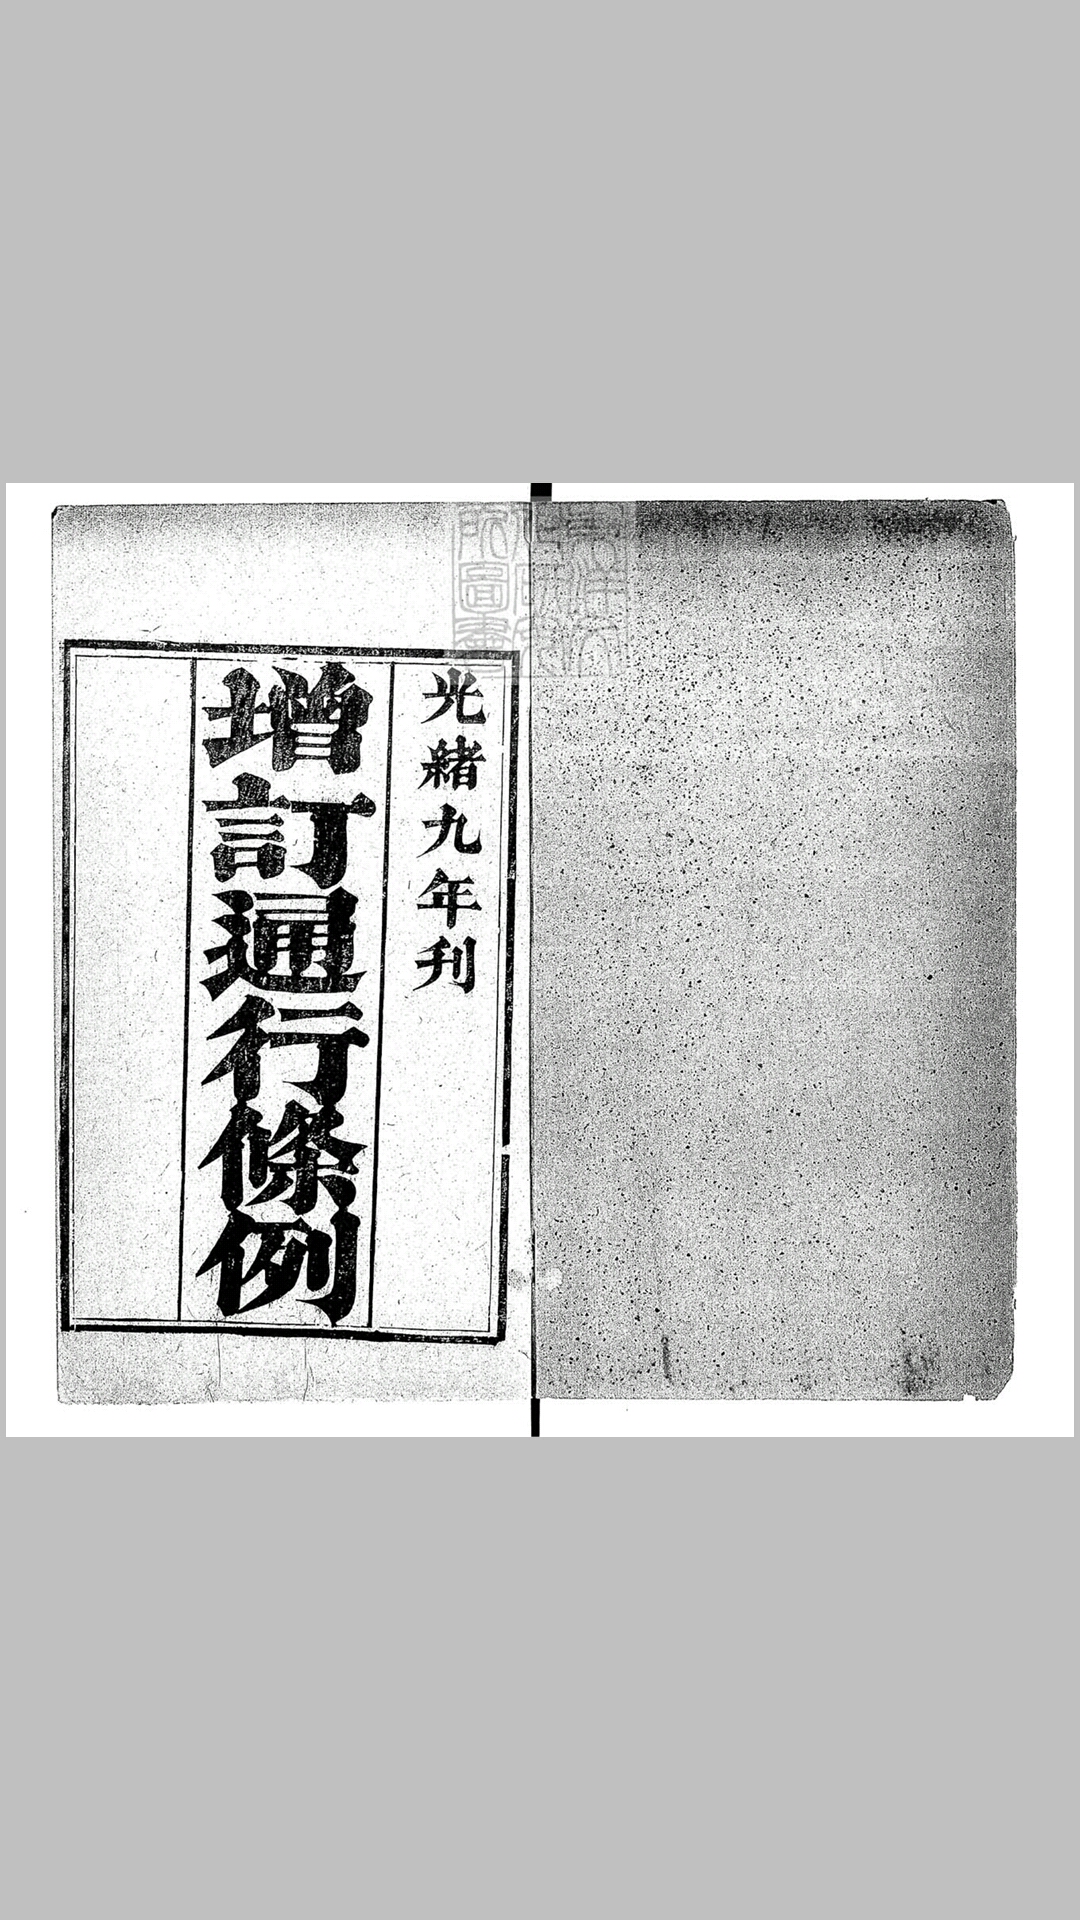 光緒九年刊
增訂通行條例